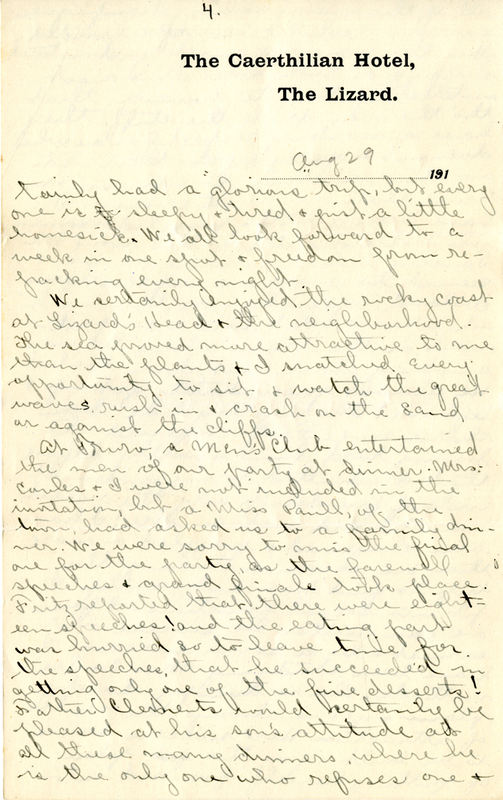 4.
The Caerthilian Hotel,
The Lizard.
Aug 29 191
tainly had a "glorious trip, but every
one is sleepy & tired & just a little
homesick. We all look forward to a
week in one spot & freedom from re-
packing every night.
We sertainly enjoyed the rocky coast
at Lizard's Head & the neighborhood.
The sea proved more attractive to me
than the plants & I snatched every
opportunity to sit & watch the great
waves rush in & crash on the sand
or against the cliffs.
At Truro, a Men's Club entertained
the men of our party at dinner. Mrs.
Cowles & I were not included in the
invitation, but a Miss Paull, of the
town, had asked us to a family din-
ner. We were sorry to miss the final
one for the party, as the farewell
speeches & grand finale took place.
Fritz reported that there were eight-
een speeches! and the eating part
was hurried so to leave time for
the speeches, that he succeeded in
getting only one of the five desserts!
Father Clements would certainly be
pleased at his son's attitude at
all these many dinners, where he
is the only one who refuses one &